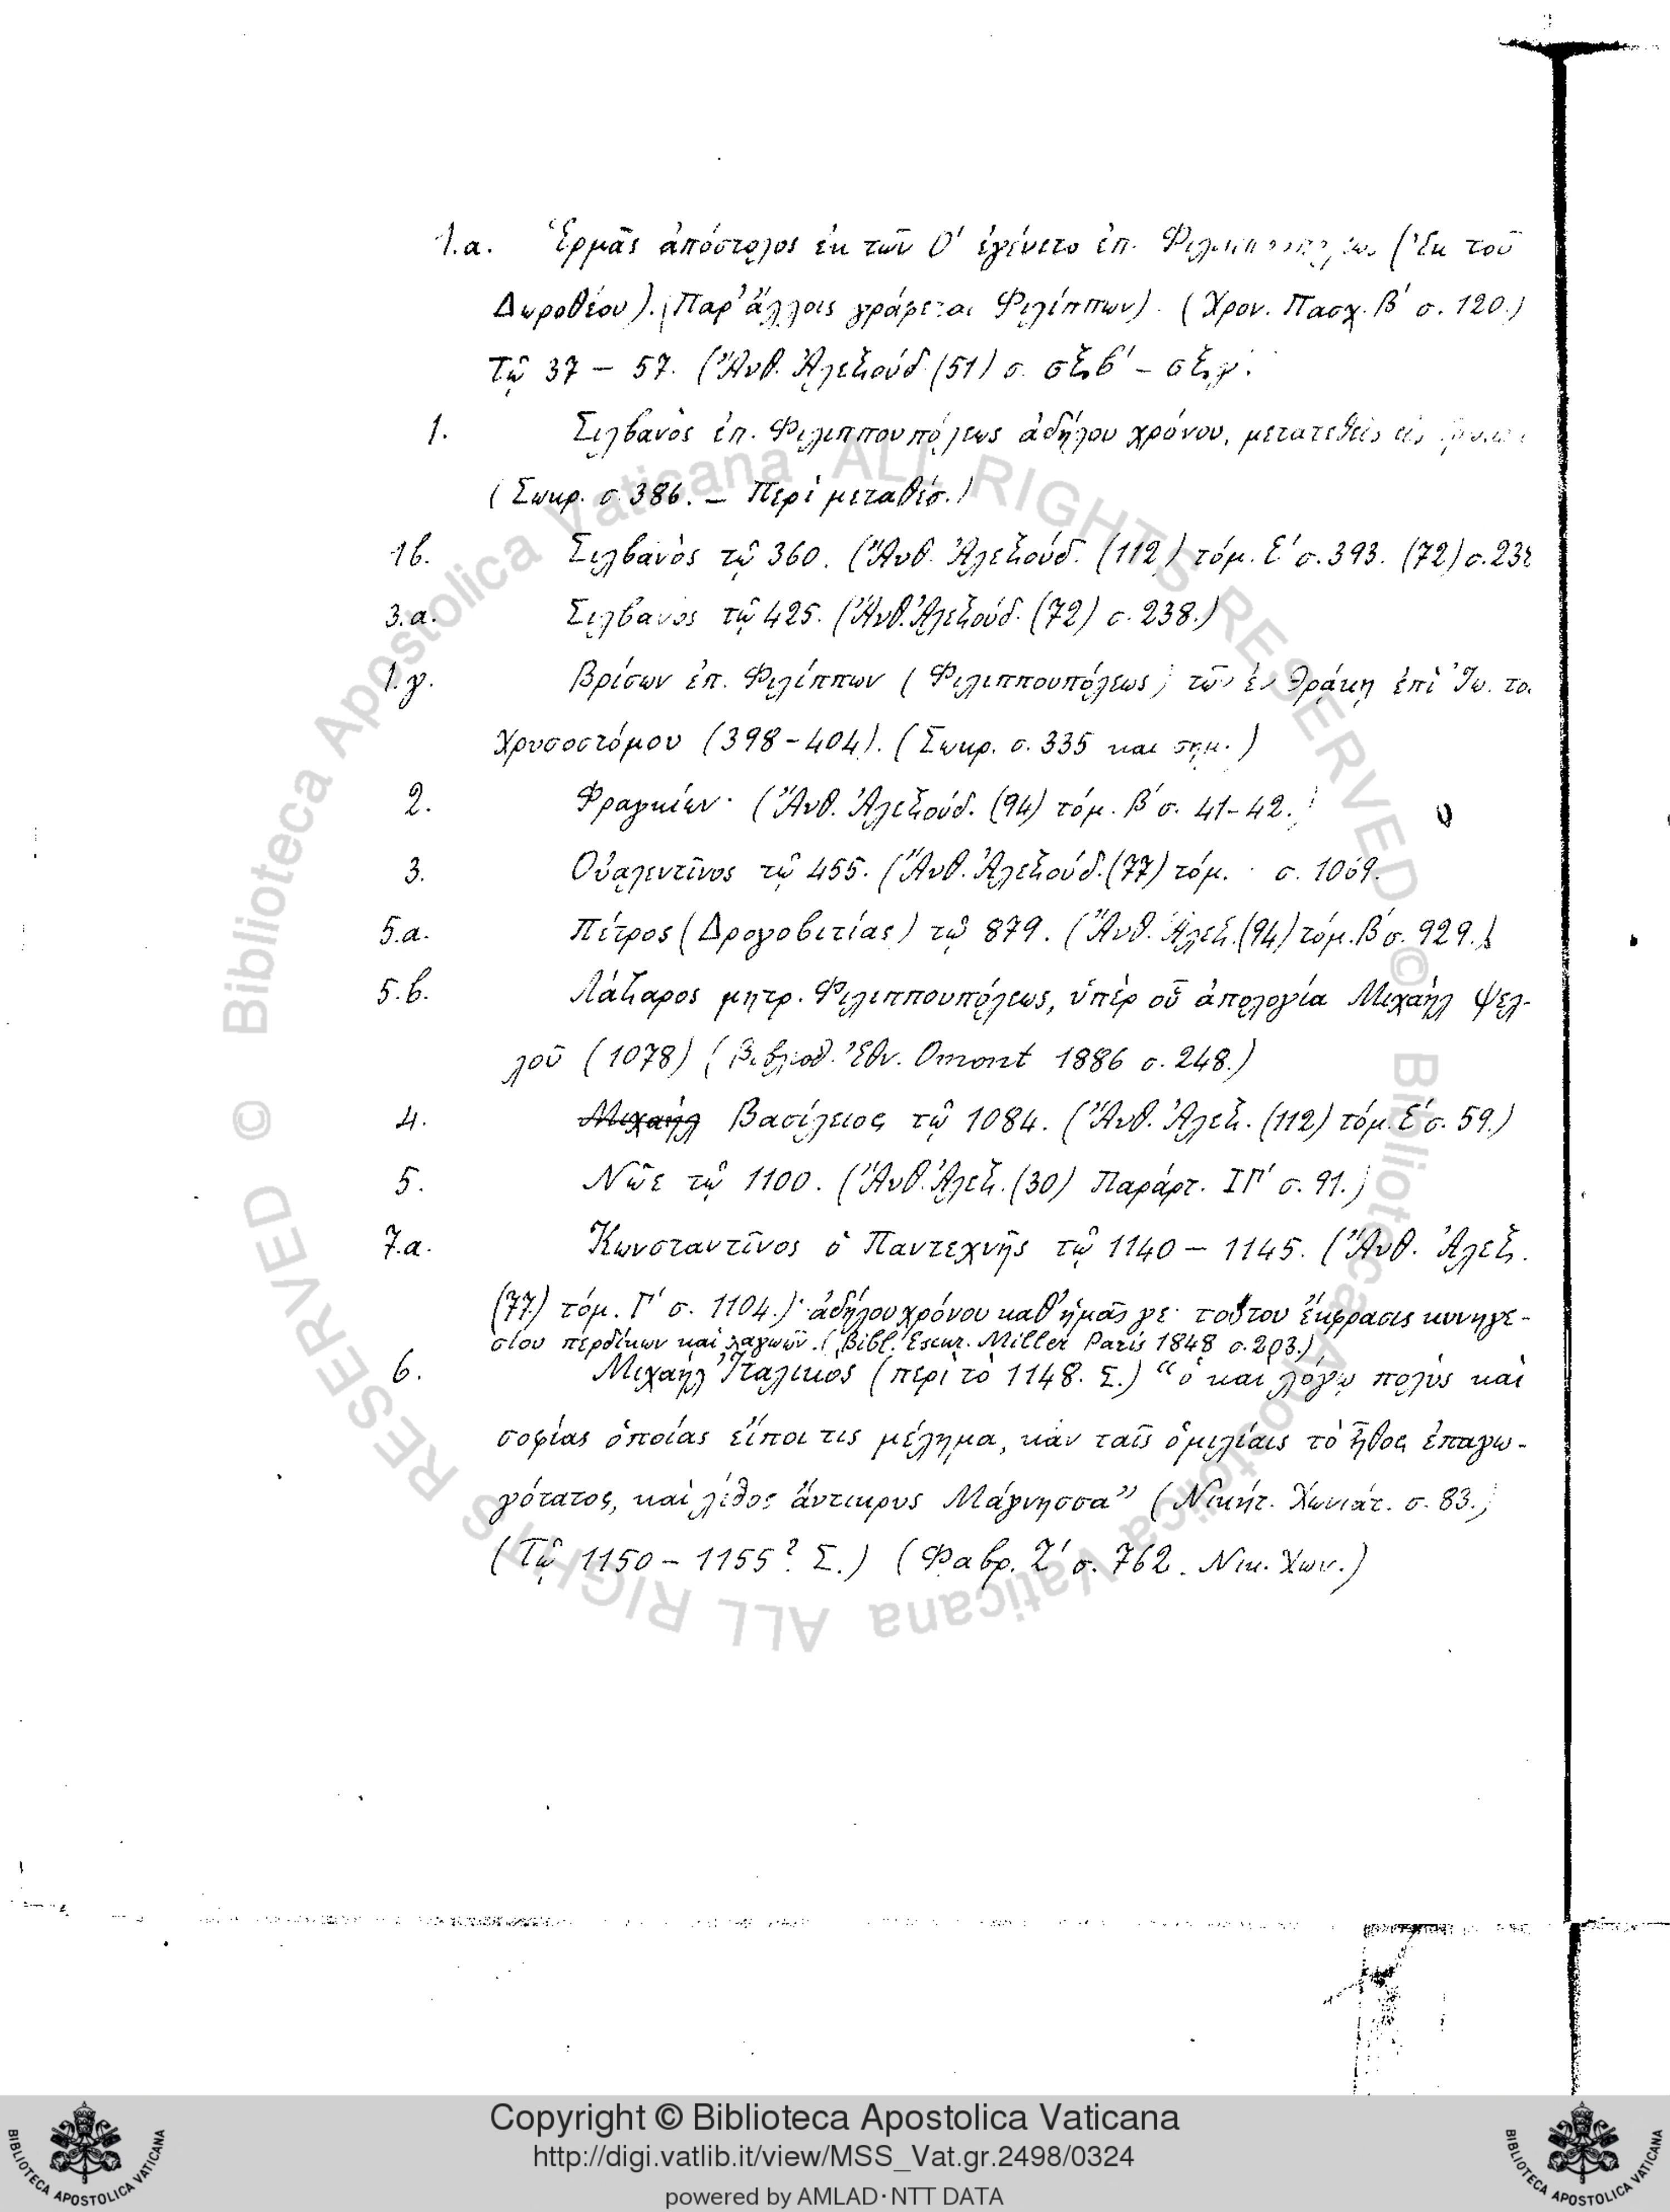 1.α. Ἑρμᾶς ἀπόστολος ἐκ τῶν Ο' ἐγένετο ἐπ. Φιλιππουπόλεως (Ἐκ τοῦ
Δωροθέου). (Παρ' ἄλλοις γράφεται Φιλίππων). (Χρον. Πασχ. Β' σ. 120.)
Τῷ 37 – 57. (Ἄνθ. Ἀλεξούδ. (51) σ. σξβ' – σξγ'.
1. Σιλβανὸς ἐπ. Φιλιππουπόλεως ἀδήλου χρόνου, μετατεθεὶς εἰς
(Σωκρ. σ. 386. – Περὶ μεταθέσ.)
1β. Σιλβανὸς τῷ 360. (Ἄνθ. Ἀλεξούδ. (112) τόμ. Ε' σ. 393. (72) σ. 238
3.α. Σιλβανὸς τῷ 425. (Ἄνθ. Ἀλεξούδ. (72) σ. 238.)
1.γ. Βρίσων ἐπ. Φιλίππων (Φιλιππουπόλεως) τῶν ἐν Θράκῃ ἐπὶ Ἰω. το
Χρυσοστόμου (398 – 404). (Σωκρ. σ. 335 και σημ.)
2. Φραγκίων· (Ἄνθ. Ἀλεξούδ. (94) τόμ. Β' σ. 41–42.)
3. Οὐαλεντῖνος τῷ 455. (Ἄνθ. Ἀλεξούδ. (77) τόμ. σ. 1069.
5.α. Πέτρος (Δρογοβιτίας) τῷ 879. (Ἄνθ. Ἀλεξ. (94) τόμ. Β' σ. 929.)
5.β. Λάζαρος μητρ. Φιλιππουπόλεως, ὑπὲρ οὗ ἀπολογία Μιχαὴλ Ψελ-
λοῦ (1078) (Βιβλιοθ. Ἐθν. Omont 1886 σ. 248.)
4. Μιχαὴλ Βασίλειος τῷ 1084. (Ἄνθ. Ἀλεξ. (112) τόμ. Ε' σ. 59.)
5. Νῶε τῷ 1100. (Ἄνθ. Ἀλεξ. (30) Παράρτ. ΙΓ' σ. 91.)
7.α. Κωνσταντῖνος ὁ Παντεχνῆς τῷ 1140 – 1145. (Ἄνθ. Ἀλεξ.
(77) τόμ. Γ' σ. 1104.)· ἀδήλου χρόνου καθ' ἡμᾶς γε· τούτου ἔκφρασις κυνηγε-
σίου περδίκων καὶ λαγωῶν. (Bibl. Escur. Miller Paris 1848 σ. 203.)
6. Μιχαὴλ Ἰταλικὸς (περὶ τὸ 1148. Σ.) “ὁ και λόγῳ πολὺς καὶ
σοφίας ὁποίας εἴποι τις μέλημα, κἀν ταῖς ὁμιλίαις τὸ ἦθος ἐπαγω-
γότατος, καὶ λίθος ἄντικρυς Μάγνησσα” (Νικήτ. Χωνιάτ. σ. 83.)
(Τῷ 1150 – 1155? Σ.) (Φαβρ. Ζ' σ. 762. Νικ. Χων.)
© Biblioteca Apostolica Vaticana ALL RIGHTS RESERVED © Biblioteca Apostolica Vaticana ALL RIGHTS RESERVED
Copyright © Biblioteca Apostolica Vaticana
http://digi.vatlib.it/view/MSS_Vat.gr.2498/0324
powered by AMLAD·NTT DATA
BIBLIOTECA APOSTOLICA VATICANA
BIBLIOTECA APOSTOLICA VATICANA